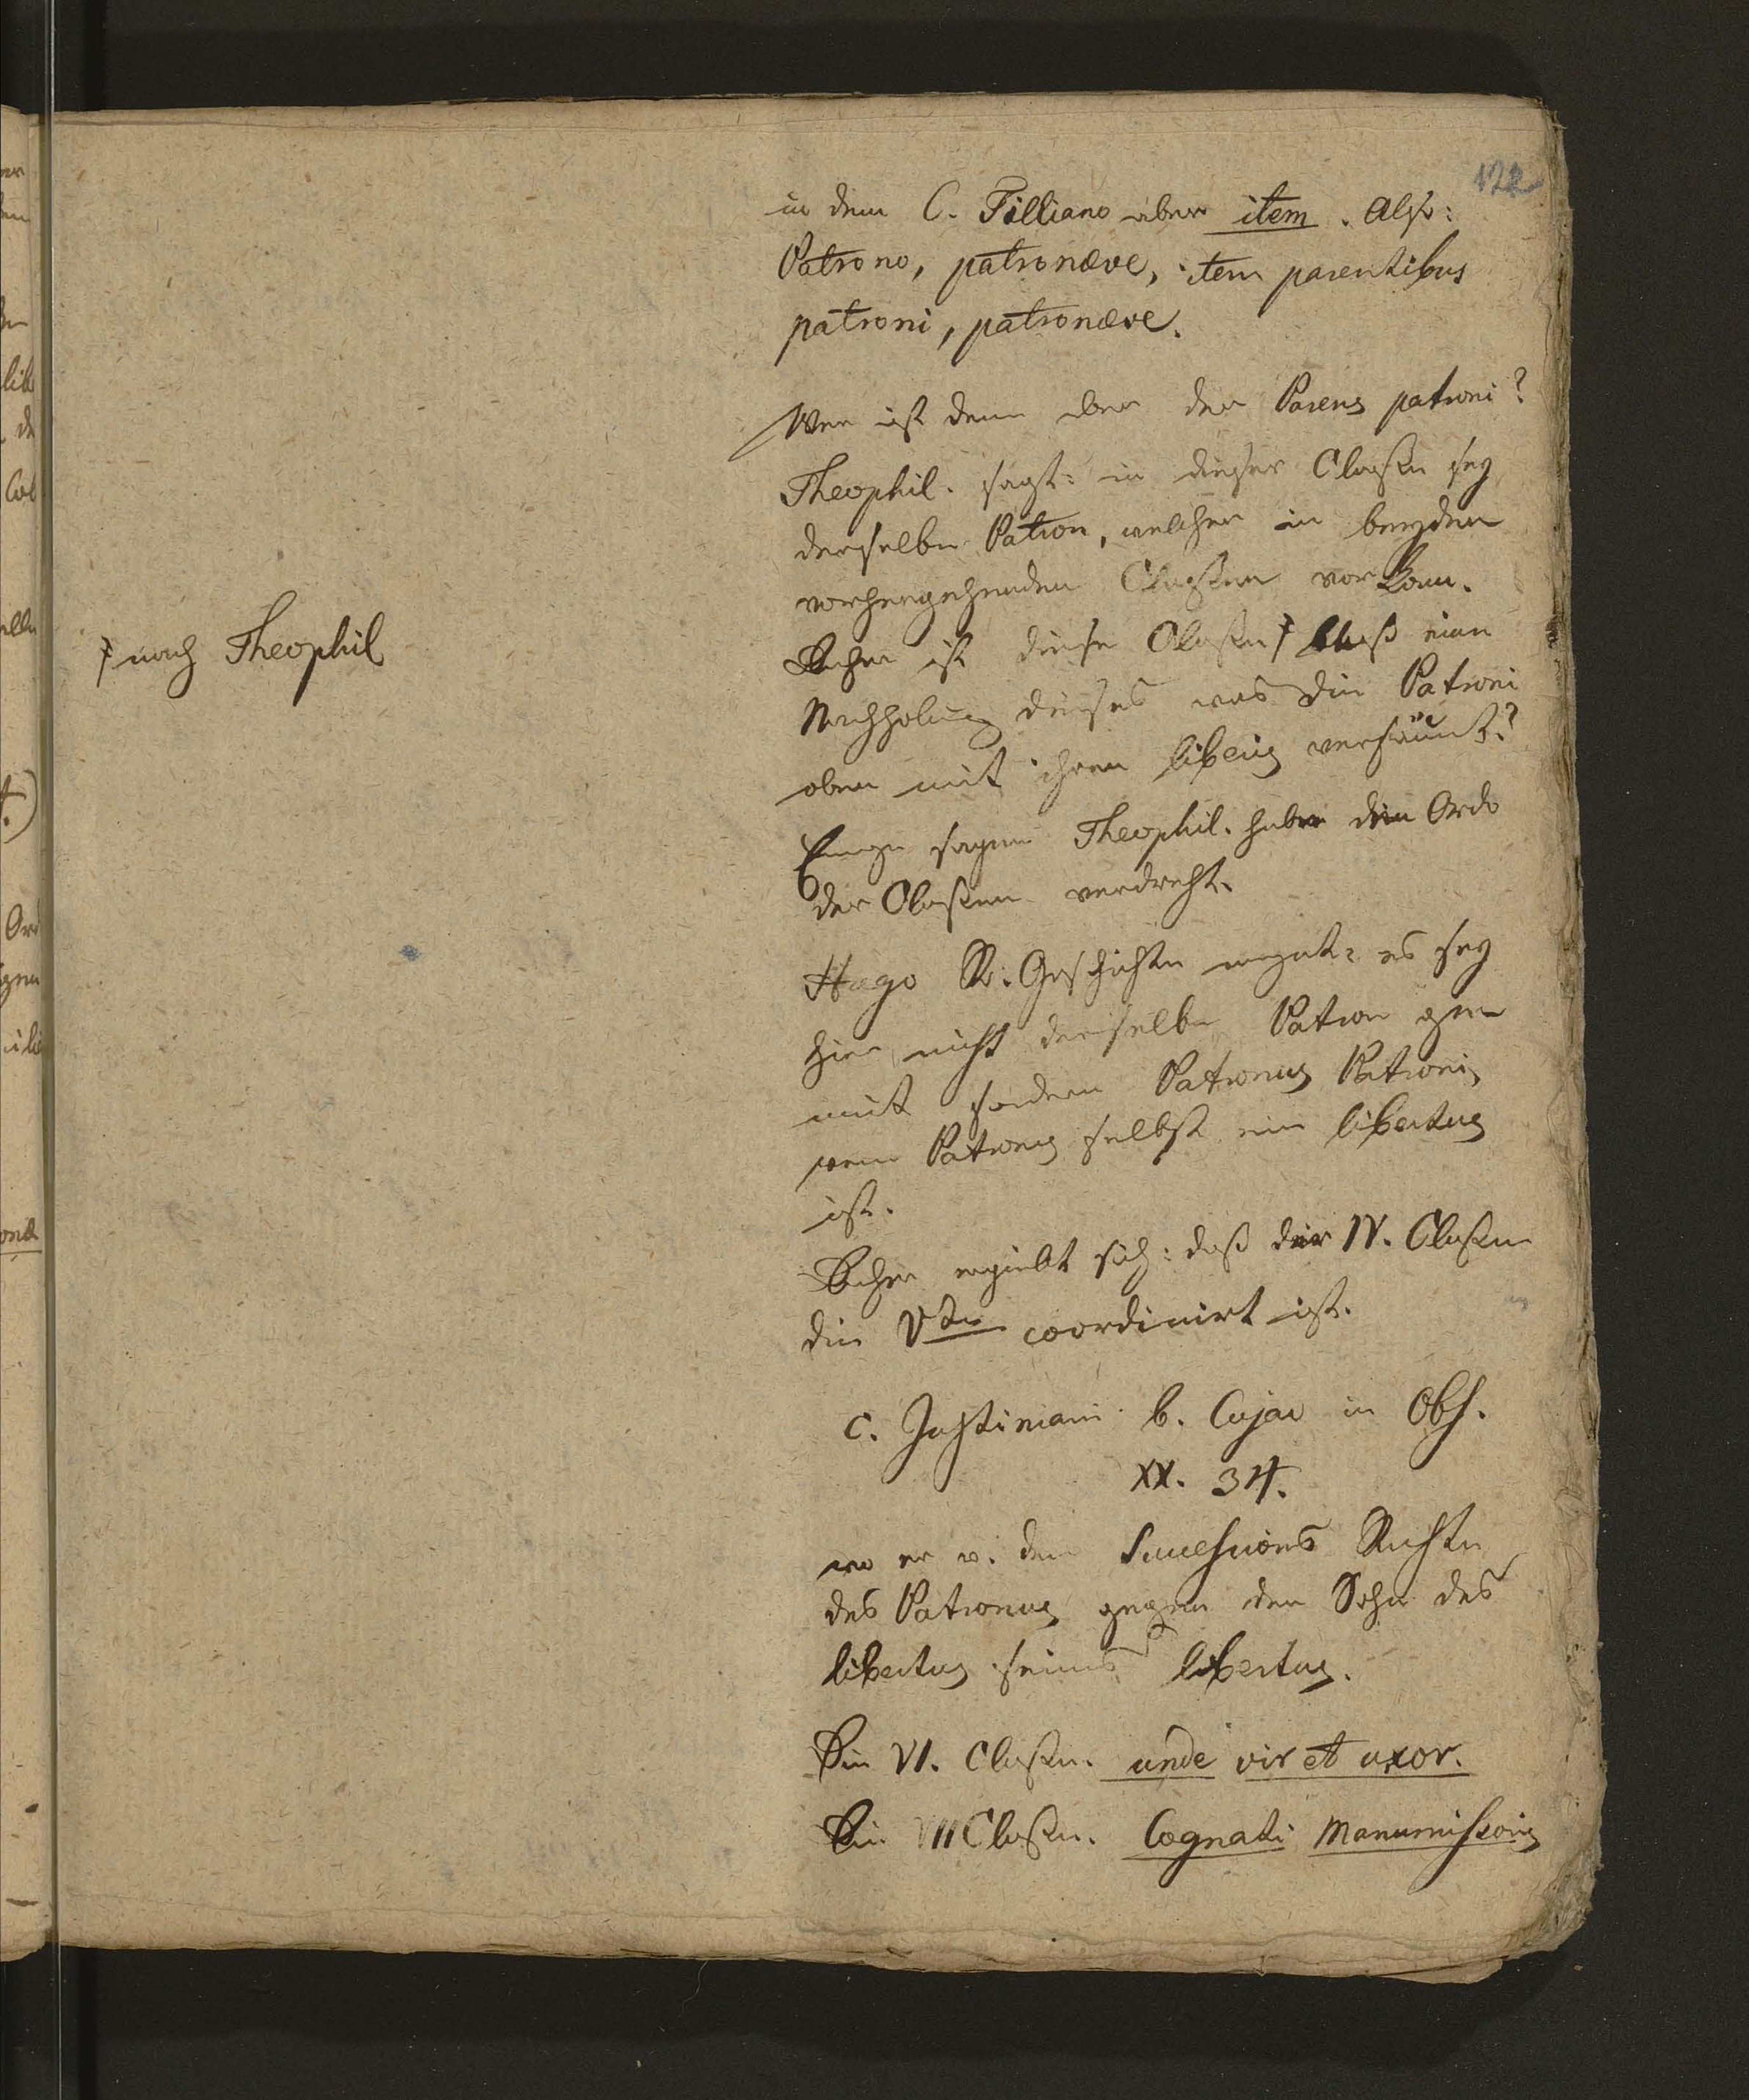 122
in dem C. Tilliano aber item. Also:
Patrono, patronæve, item parentibus
patroni, patronæve.
Wer ist denn aber der Parens patroni?
Theophil. sagt: in dieser Classe sey
derselbe Patron, welcher in beyden
vorhergehenden Classen vorkom.
Daher ist diese Classe ⌿ bloß eine
⌿ nach Theophil
Nachholung dieses was die Patroni
oben mit ihren liberis versäumt?
Einige sagen Theophil. habe den Ordo
der Classen verdreht.
Hugo R. Geschichte sagt: es sey
hier nicht derselbe Patron
mit sondern Patronus Patroni,
wenn Patronus selbst ein libertus
ist.
Daher ergiebt sich: daß der IV. Classe
die Vte coordinirt ist.
c. Justiniani b. Cujac in Obs.
XX. 34.
wo er v. dem Successions Rechte
des Patronus gegen den Sohn des
libertus seines libertus.
Die VI. Classe. unde vir et uxor.
Die VII Classe. Cognati Manumissoris